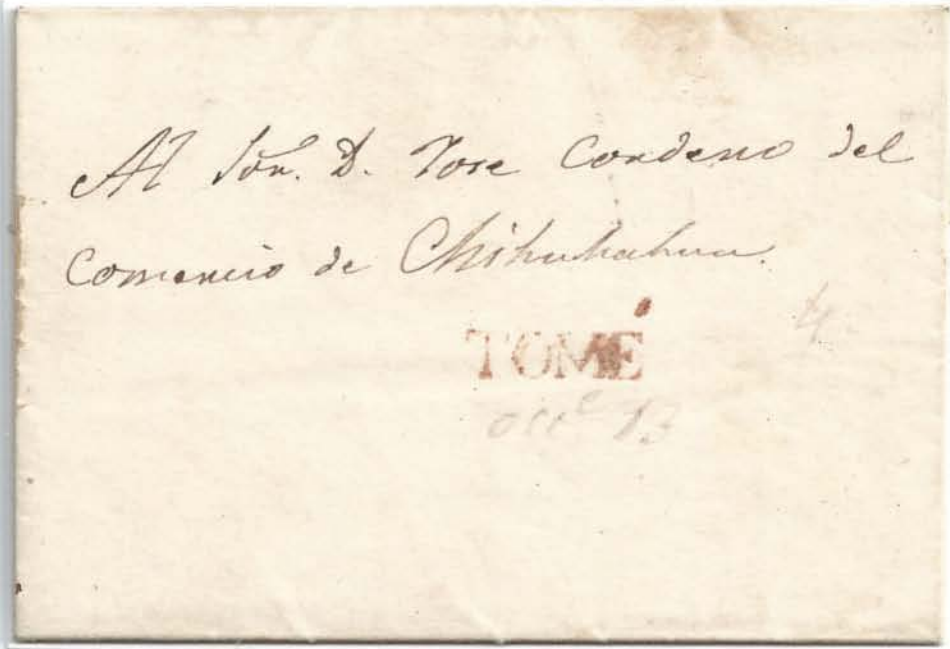 Al Sōn. D. Jose Cordero del
Comercio de Chihuhahua.
TOMÉ
13